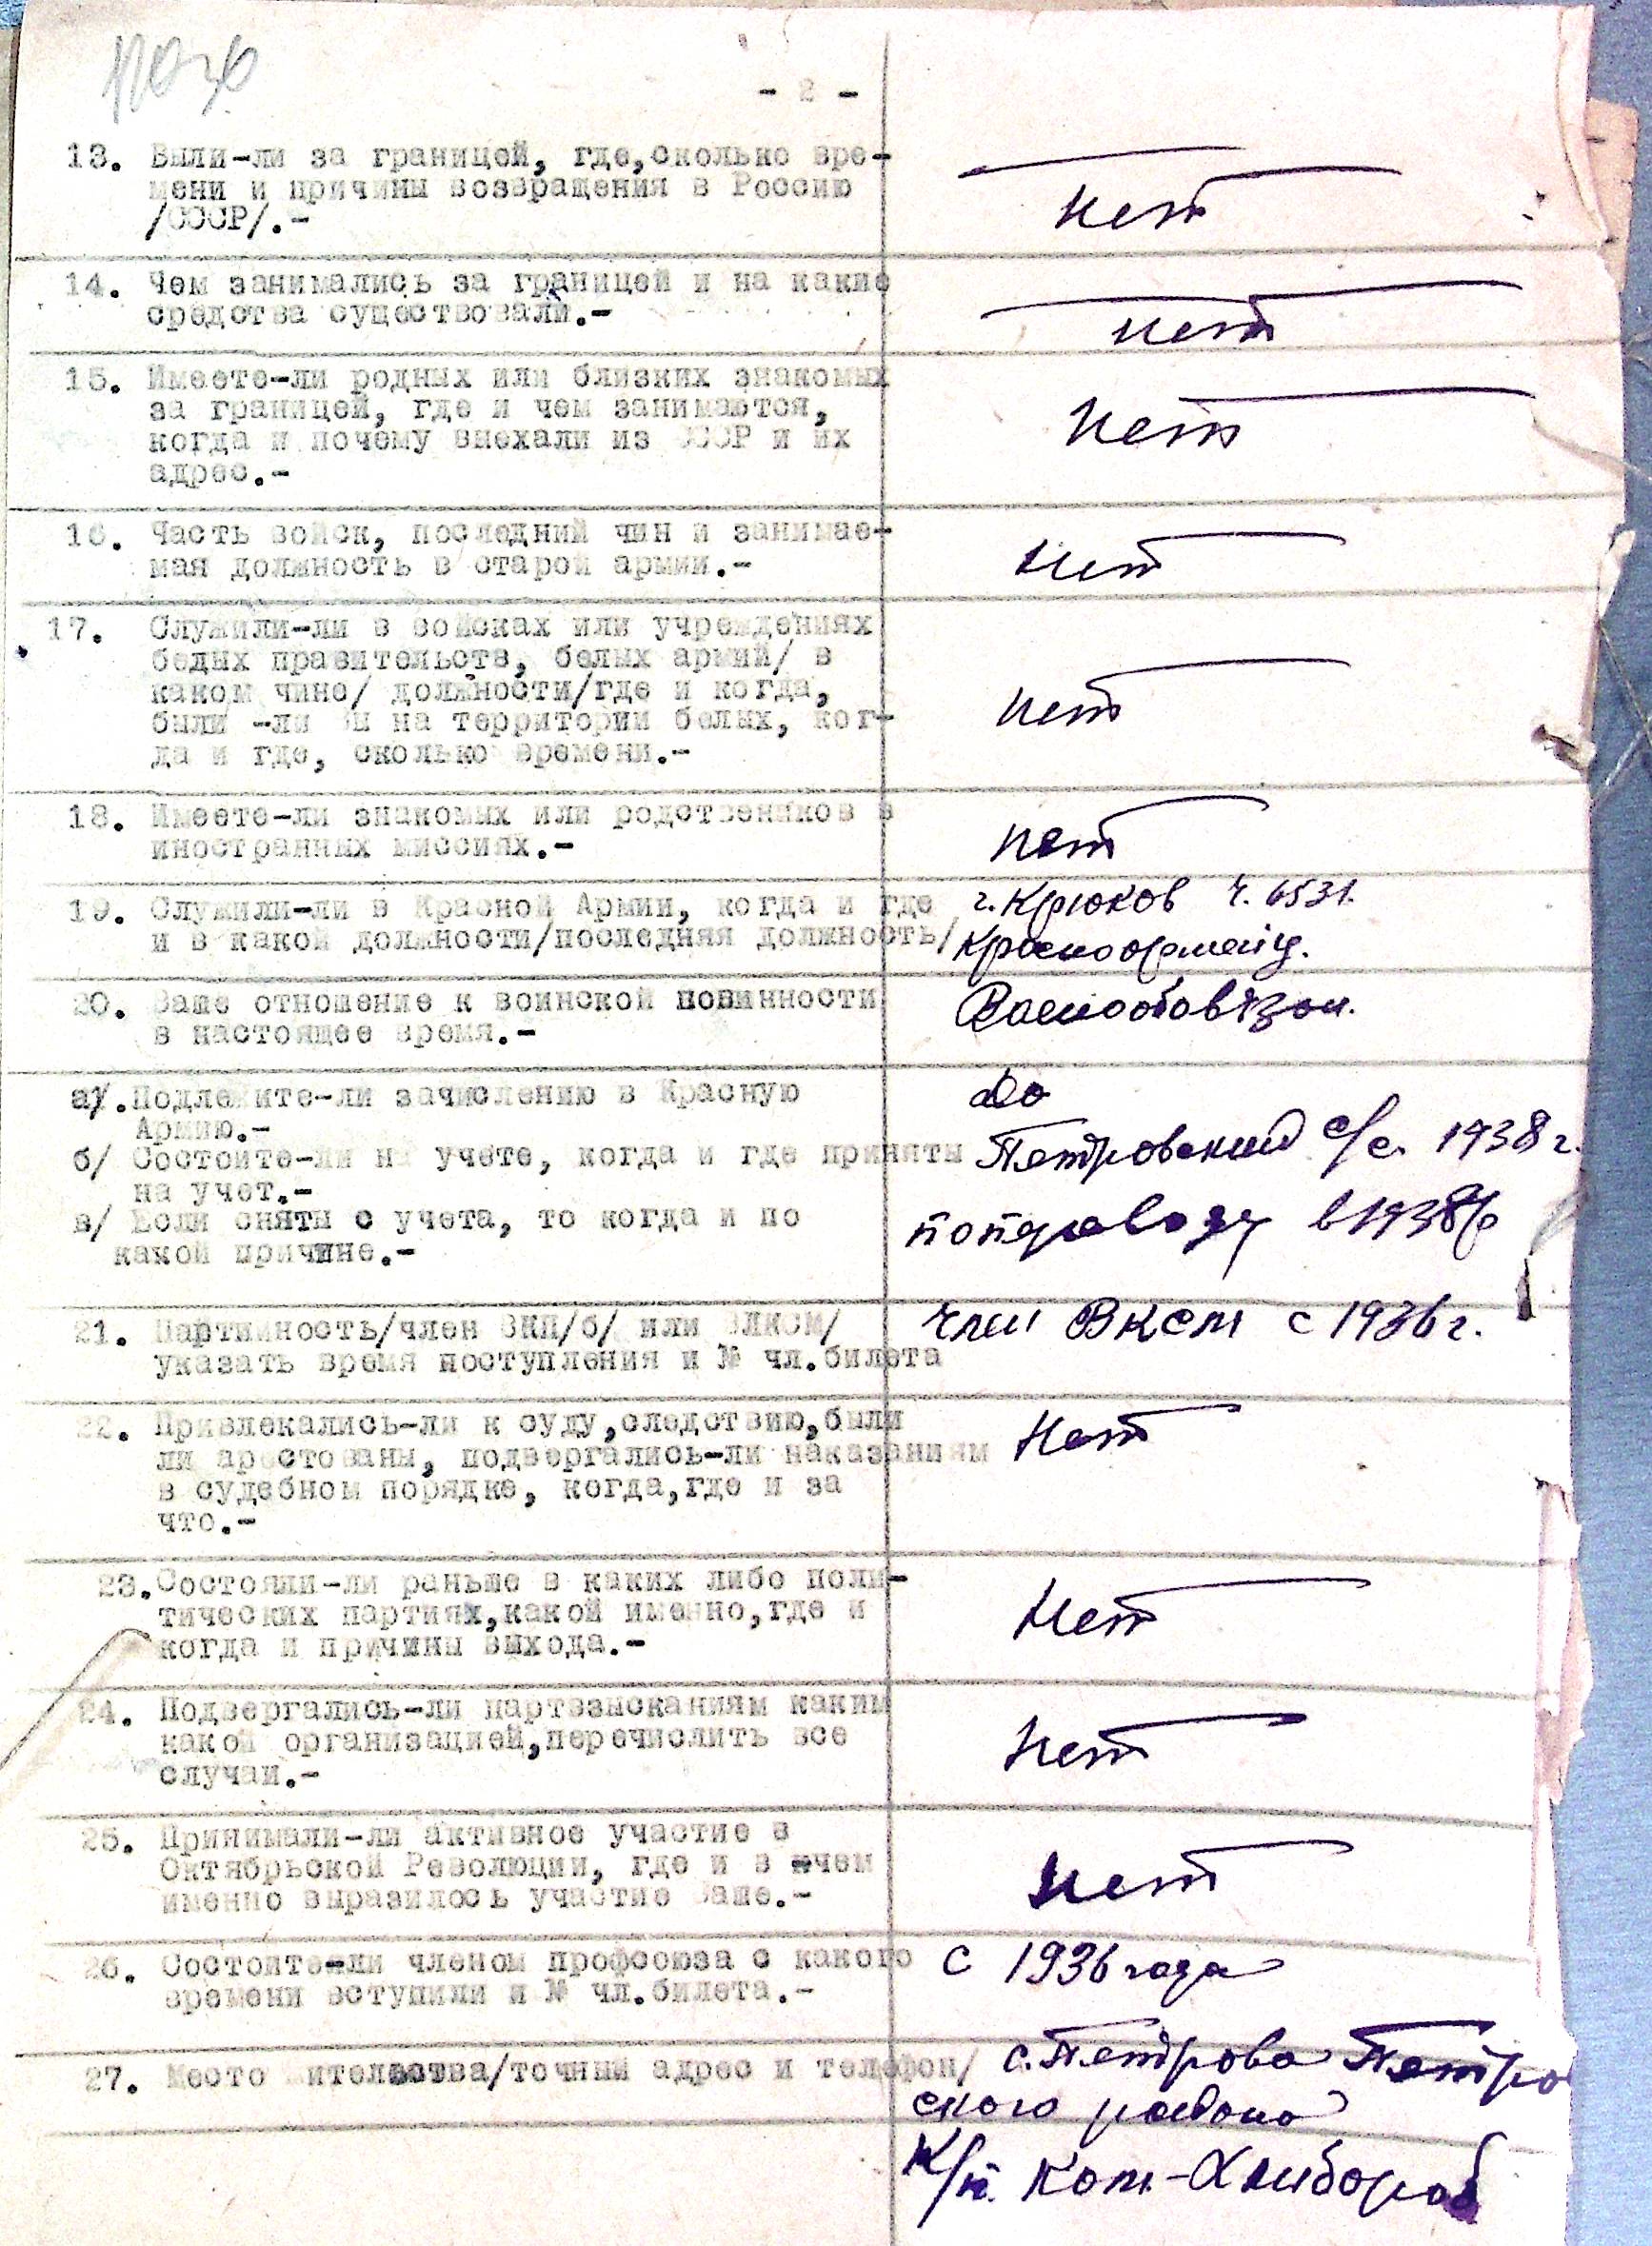 - 2 -
13. Были-ли за границей, где, сколько вре-
мени и причины возвращения в Россию
/СССР/.-
нет
14. Чем занимались за границей и на какие
средства существовали.-
нет
15. Имеете-ли родных или близких знакомых
за границей, где и чем занимаются,
когда и почему выехали из СССР и их
адрес.-
нет
16. Часть войск, последний чин и занимае-
мая должность в старой армии.-
нет
17. Служили-ли в войсках или учреждениях
белых правительств, белых армий/ в
каком чине/ должности/где и когда,
были -ли Вы на территории белых, ког-
да и где, сколько времени.-
нет
18. Имеете-ли знакомых или родственников в
иностранных миссиях.-
нет
19. Служили-ли в Красной Армии, когда и где
и в какой должности/последняя должность/
г. Крюков ч. 6531.
Красноармеец.
20. Ваше отношение к воинской повинности
в настоящее время.-
Военообовязан.
а/.Подлежите-ли зачислению в Красную
Армию.-
До
б/ Состоите-ли на учете, когда и где приняты
на учет.-
Петровский с/с. 1938 г.
в/ Если сняты с учета, то когда и по
какой причине.-
в 1938р
21. Партийность/член ВКП/б/ или ВЛКСМ/
указать время поступления и № чл.билета
член ВКСМ с 1936 г.
22. Привлекались-ли к суду,следствию,были
ли арестованы, подвергались-ли наказаниям
в судебном порядке, когда,где и за
что.-
Нет
23.Состояли-ли раньше в каких либо поли-
тических партиях,какой именно,где и
когда и причины выхода.-
Нет
24. Подвергались-ли партвзысканиям каким
какой организацией,перечислить все
случаи.-
Нет
25. Принимали-ли активное участие в
Октябрьской Революции, где и в чем
именно выразилось участие Ваше.-
нет
26. Состоите-ли членом профсоюза с какого
времени вступили и № чл.билета.-
С 1936 года
27. Место жительства/точный адрес и телефон/
с. Петрово Петро
ского района
К/п. Ком-Хлибороб